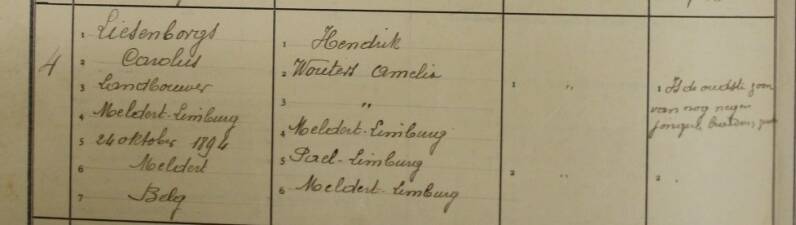 4
1 Liesenborgs
2 Carolus
3 Landbouwer
4 Meldert-Limburg
5 24 oktober 1894
6 Meldert
7 Belg
1 Hendrik
2 Wouters Amelia
3 "
4 Meldert-Limburg
5 Pael-Limburg
6 Meldert-Limburg
1 "
2 "
1 Is de oudste zoon
van nog negen
2 "